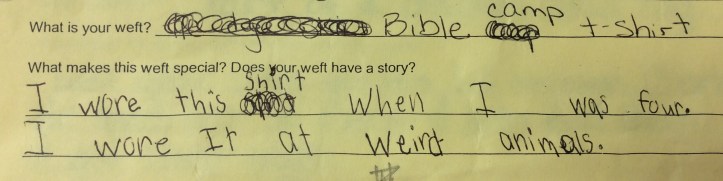 What is your weft? Bible camp t-shirt
What makes this weft special? Does your weft have a story?
I wore this shirt when I was four.
I wore It at weird animals.